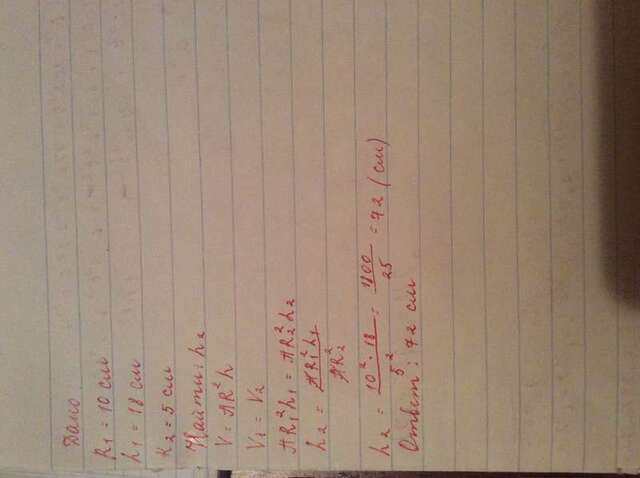 Дано:
R₁ = 10 см
h₁ = 18 см
R₂ = 5 см
Найти: h₂
V = πR²h
V₁ = V₂
πR₁²h₁ = πR₂²h₂
h₂ = πR₁²h₁ / πR₂²
h₂ = 10² · 18 / 5² = 1800 / 25 = 72 (см)
Ответ: 72 см